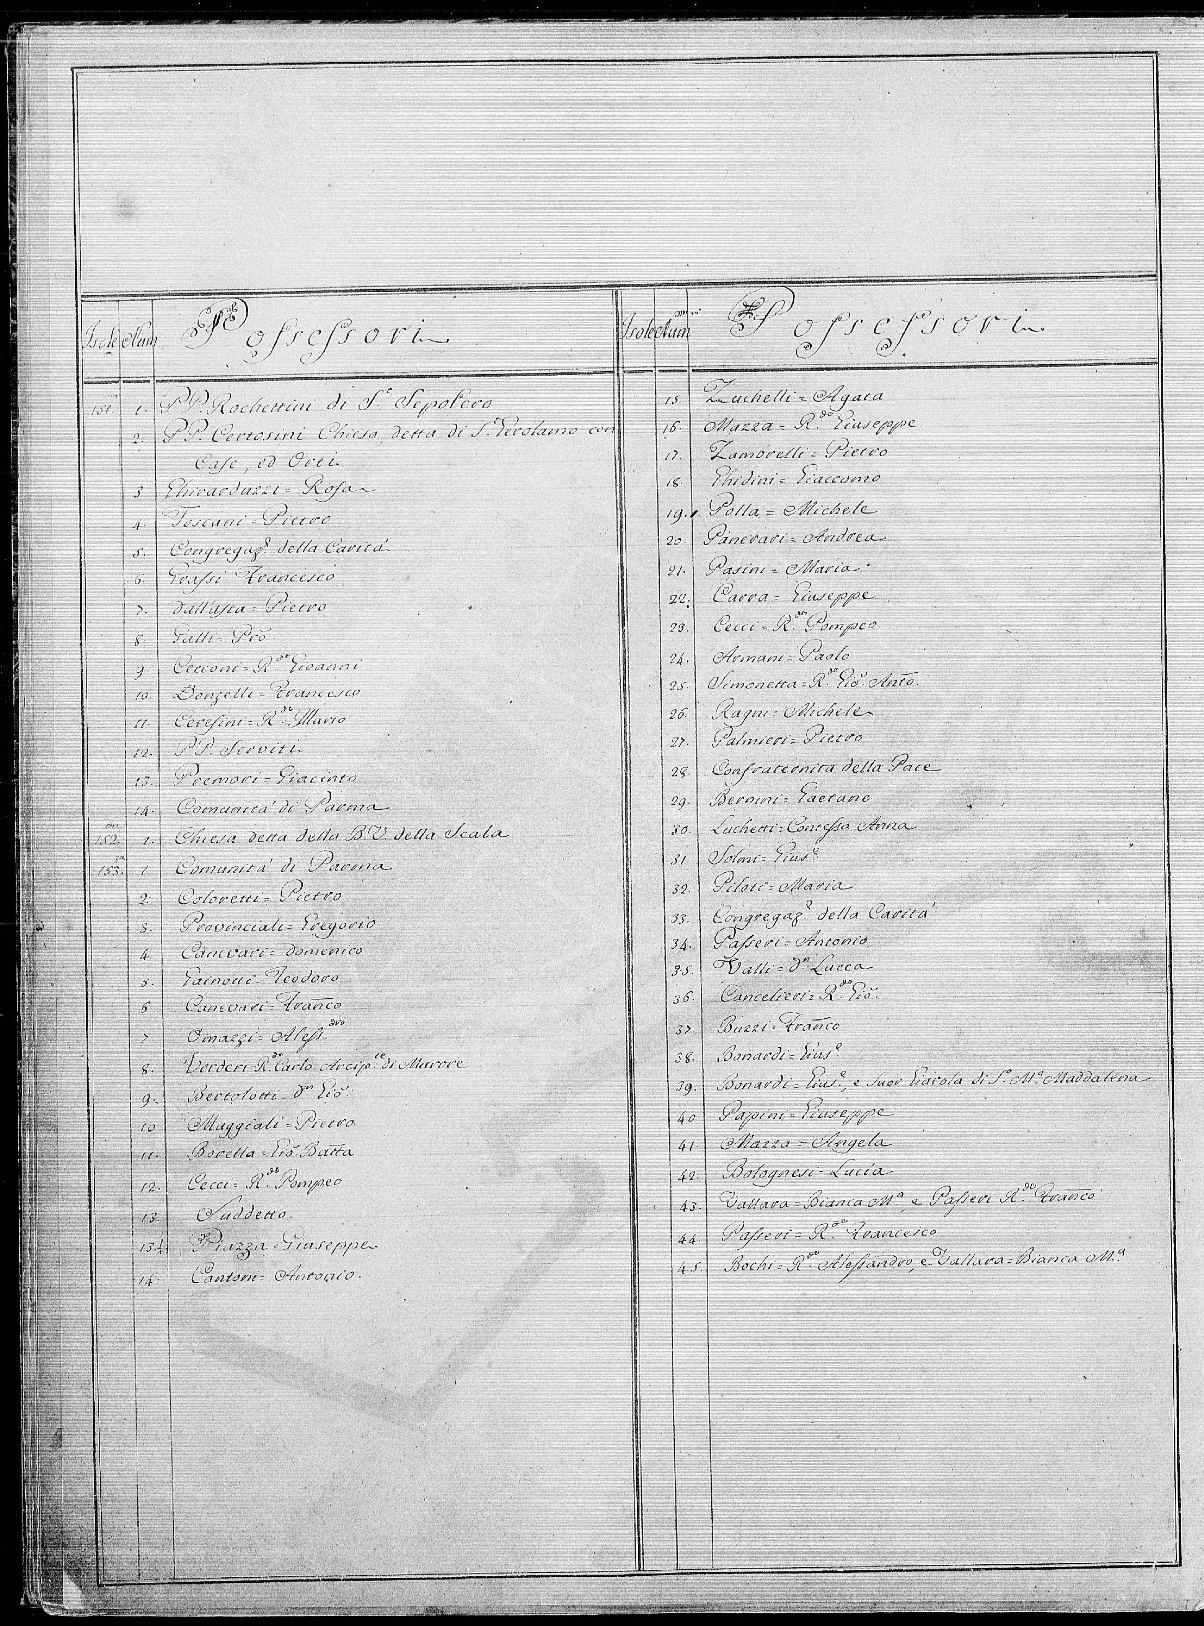 Isole Num Possessori
151 1. PP. Rochettini di S.º Sepolcro
2. PP. Certosini Chiesa, detta di S. Girolamo con
Case, ed Orti
3 Ghirarduzzi = Rosa
4. Toscani = Pietro
5. Congregaz.e della Carità
6. Grassi Francesco
7. Dall'asta = Pietro
8. Galli = Pro
9 Cerconi = R.do Gioanni
10. Donzelli = Francesco
11. Ceresini = R.do Mario
12. PP. Serviti
13. Premori = Giacinto
14. Comunità di Parma
152. 1. Chiesa detta della B. V. della Scala
153. 1 Comunità di Parma
2. Coloretti = Pietro
3. Provinciali = Gregorio
4 Canevari = Domenico
5. Gainotti = Teodoro
6 Canevari = Franco
7 Omazzi = Aless.dro
8. Verderi R.do Carlo Arcip.te di Marore
9. Bertolotti = D.n Gio.
10 Maggiali = Pietro
11. Borella = Gio. Batta
12. Cecci = R.do Pompeo
13 Suddetto.
13½ Piazza = Giuseppe
14. Cantoni = Antonio.
Isole Num Possessori
15 Zuchelli = Agata
16. Mazza = R.do Giuseppe
17. Zamorelli = Pietro
18 Ghidini = Giaccomo
19. Polla = Michele
20 Panerari = Andrea
21. Pasini = Maria
22. Carra = Giuseppe
23. Cecci = R.do Pompeo
24. Armani = Paolo
25. Simonetta = R.do Gio. Anto.
26. Ragni = Michele
27. Palmieri = Pietro
28. Confraternita della Pace
29. Bernini = Gaetano
30. Luchetti = Contessa Anna
31 Solmi = Gius.e
32. Piloti = Maria
33. Congregaz.e della Carità
34. Passeri = Antonio
35. Valli = D.n Lucca
36. Cancelieri = R.do Gio.
37 Buzzi = Franco
38. Bonardi = Gius.e
39. Bonardi = Gius.e, e Suor Giarola di S.a M.a Maddalena
40 Papini = Giuseppe
41 Mazza = Angela
42. Bolognesi = Lucia
43. Vallara = Bianca M.a, e Passeri R.do Franco
44 Passeri = R.do Francesco
45. Bochi = R.do Alessandro, e Vallara = Bianca M.a